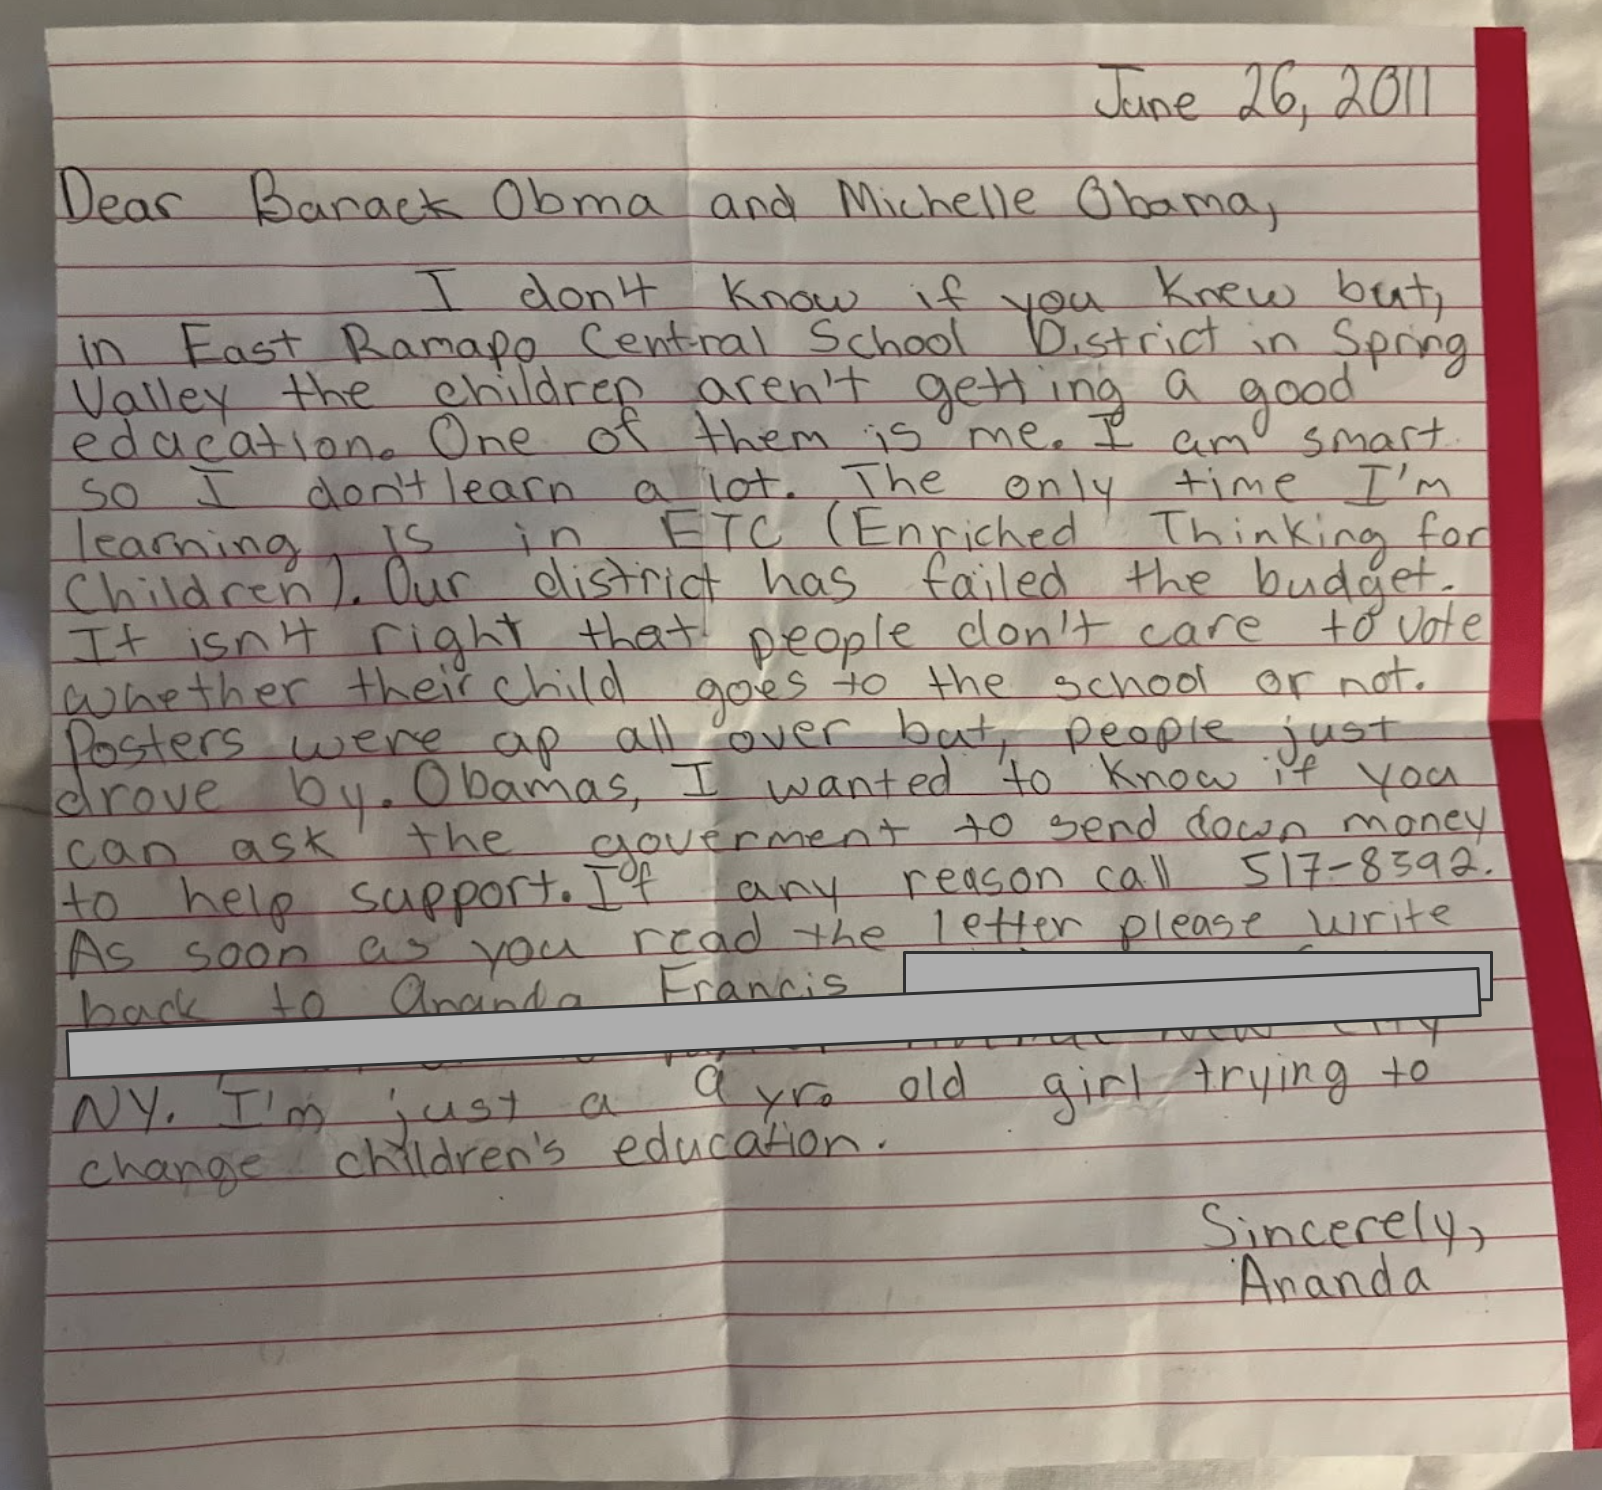 June 26, 2011
Dear Barack Obma and Michelle Obama,
I don't know if you knew but,
in East Ramapo Central School District in Spring
Valley the children aren't getting a good
education. One of them is me. I am smart
so I don't learn a lot. The only time I'm
learning is in ETC (Enriched Thinking for
Children). Our district has failed the budget.
It isn't right that people don't care to vote
whether their child goes to the school or not.
Posters were up all over but, people just
drove by. Obamas, I wanted to know if you
can ask the goverment to send down money
to help support. If any reason call 517-8392.
As soon as you read the letter please write
back to Ananda Francis
New City
NY. I'm just a 9 yr. old girl trying to
change children's education.
Sincerely,
Ananda